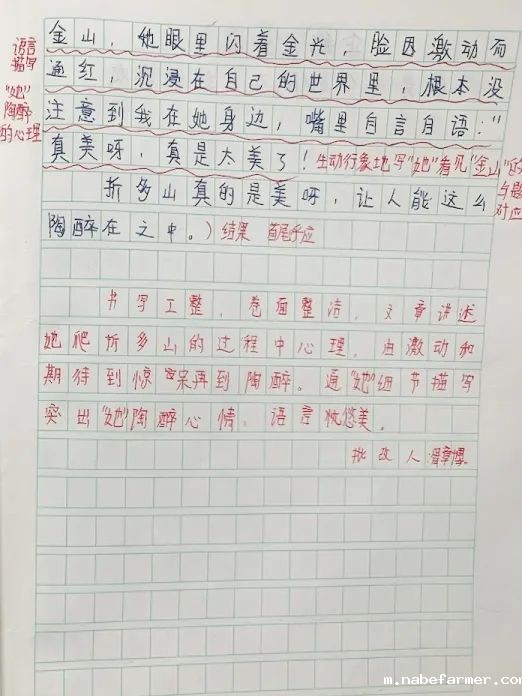 金山，他眼里闪着金光，脸因激动而
通红，沉浸在自己的世界里，根本没
注意到我在她身边，嘴里自言自语："
真美呀，真是太美了！生动形象地写"她"看见"金山"的
与题
对应
折多山真的是美呀，让人能这么
陶醉在之中。）结果 首尾呼应
语言
描写
"她"
陶醉
的心理
书写工整，卷面整洁，文章讲述
她爬折多山的过程中心理，由激动和
期待到惊呆再到陶醉。通"她"细节描写
突出"她"陶醉心情，语言优悠美。
批改人
m.nabefarmer.com